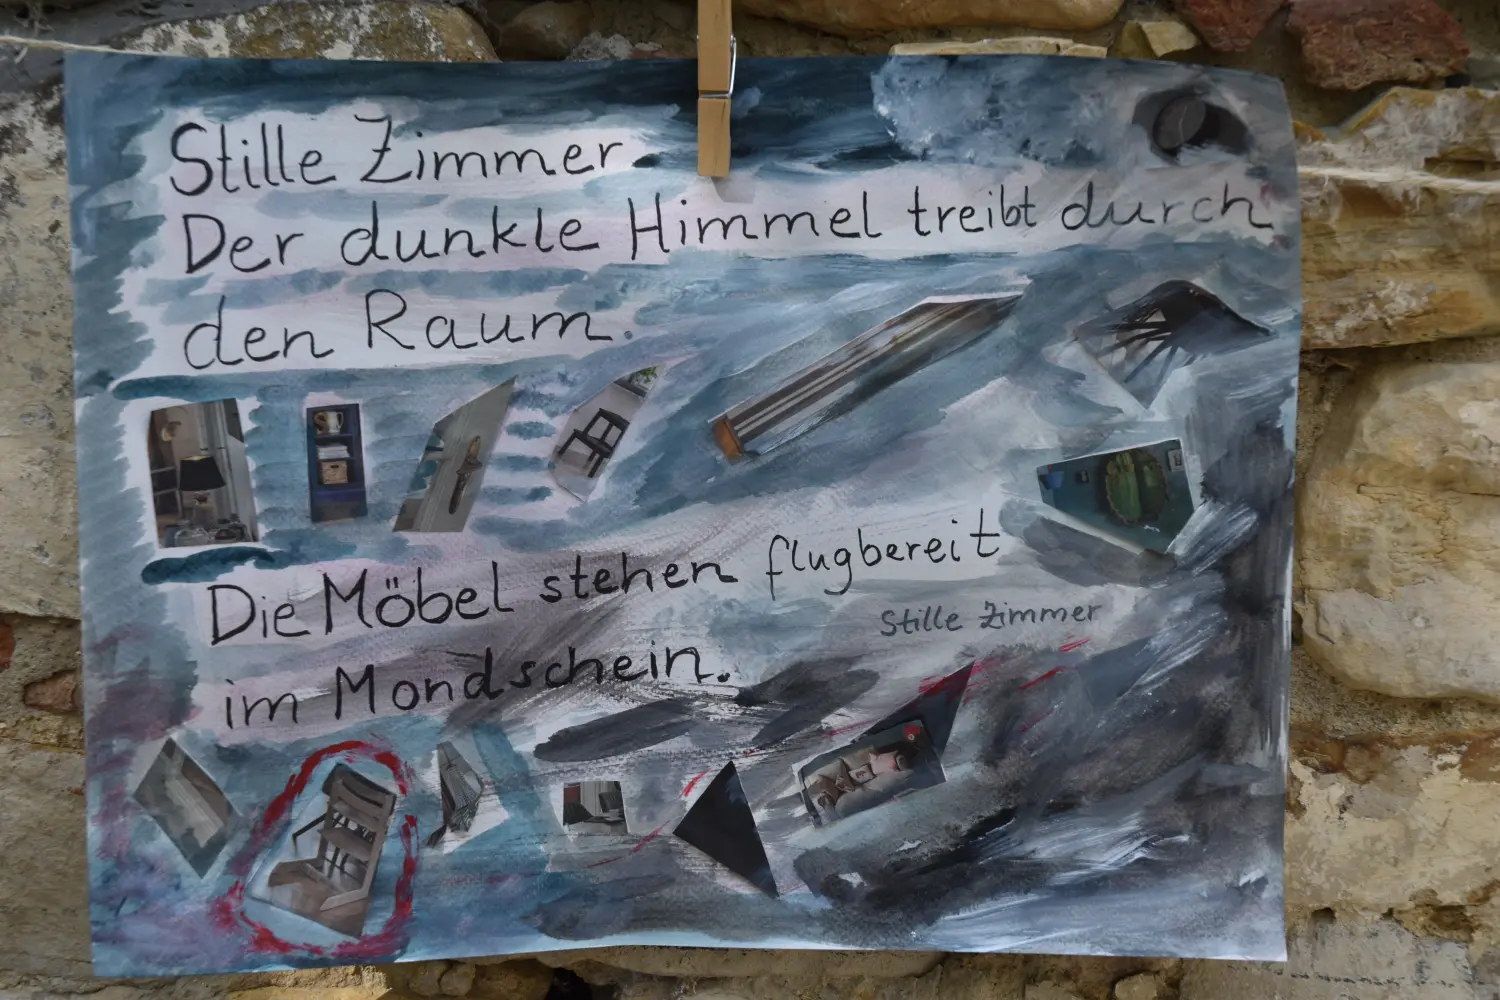 Stille Zimmer
Der dunkle Himmel treibt durch
den Raum.
Die Möbel stehen flugbereit
im Mondschein.
Stille Zimmer